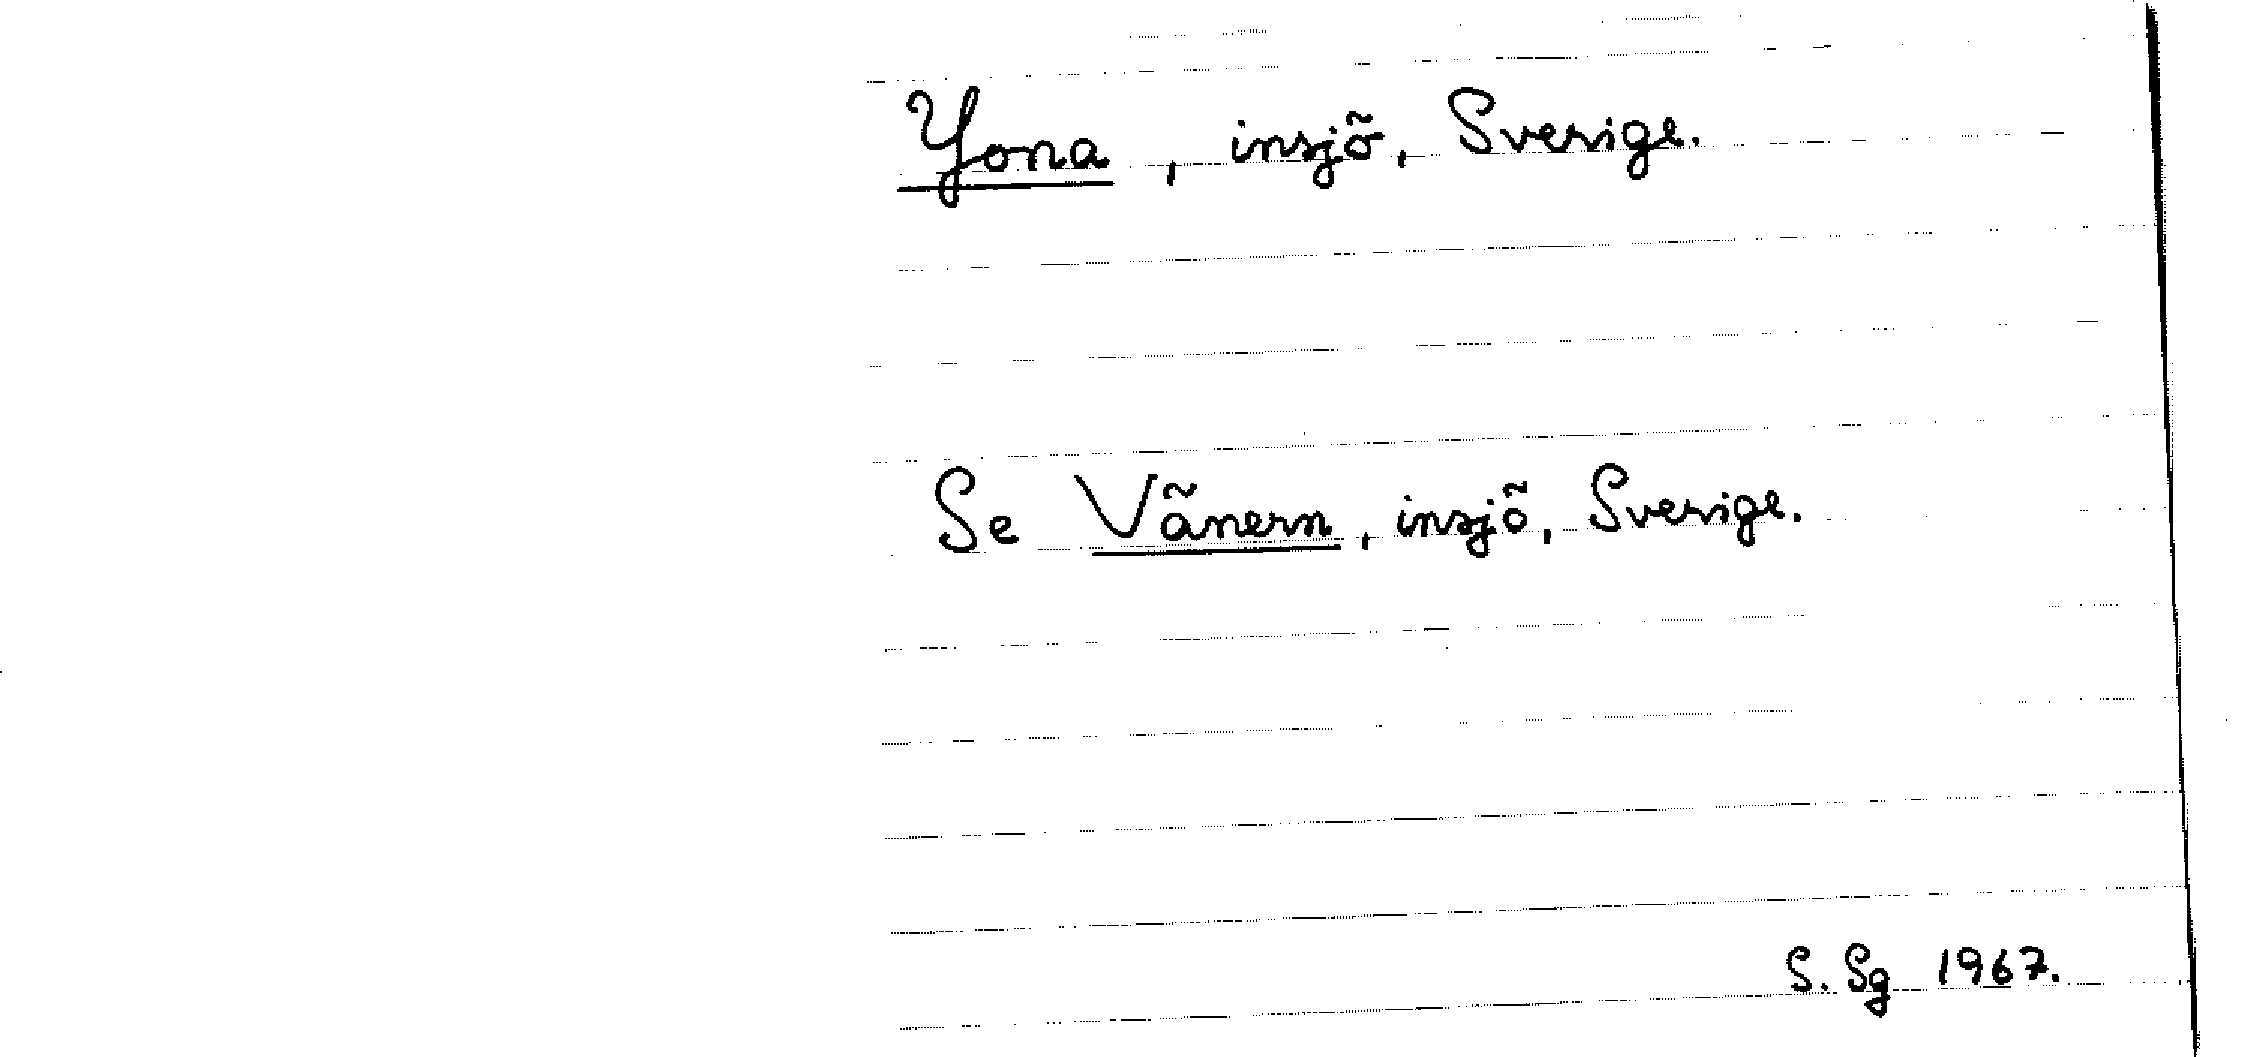 Yona, insjö, Sverige.
Se Vänern, insjö, Sverige.
S. Sg 1967.